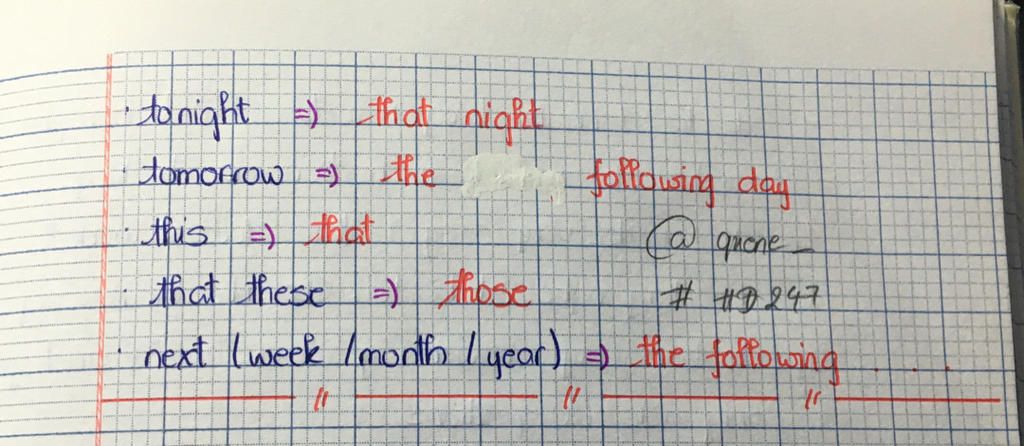 · tonight => that night
· tomorrow => the following day
· this => that
@ qnone_
· that these => those
# #D247
· next (week / month / year) => the following ....